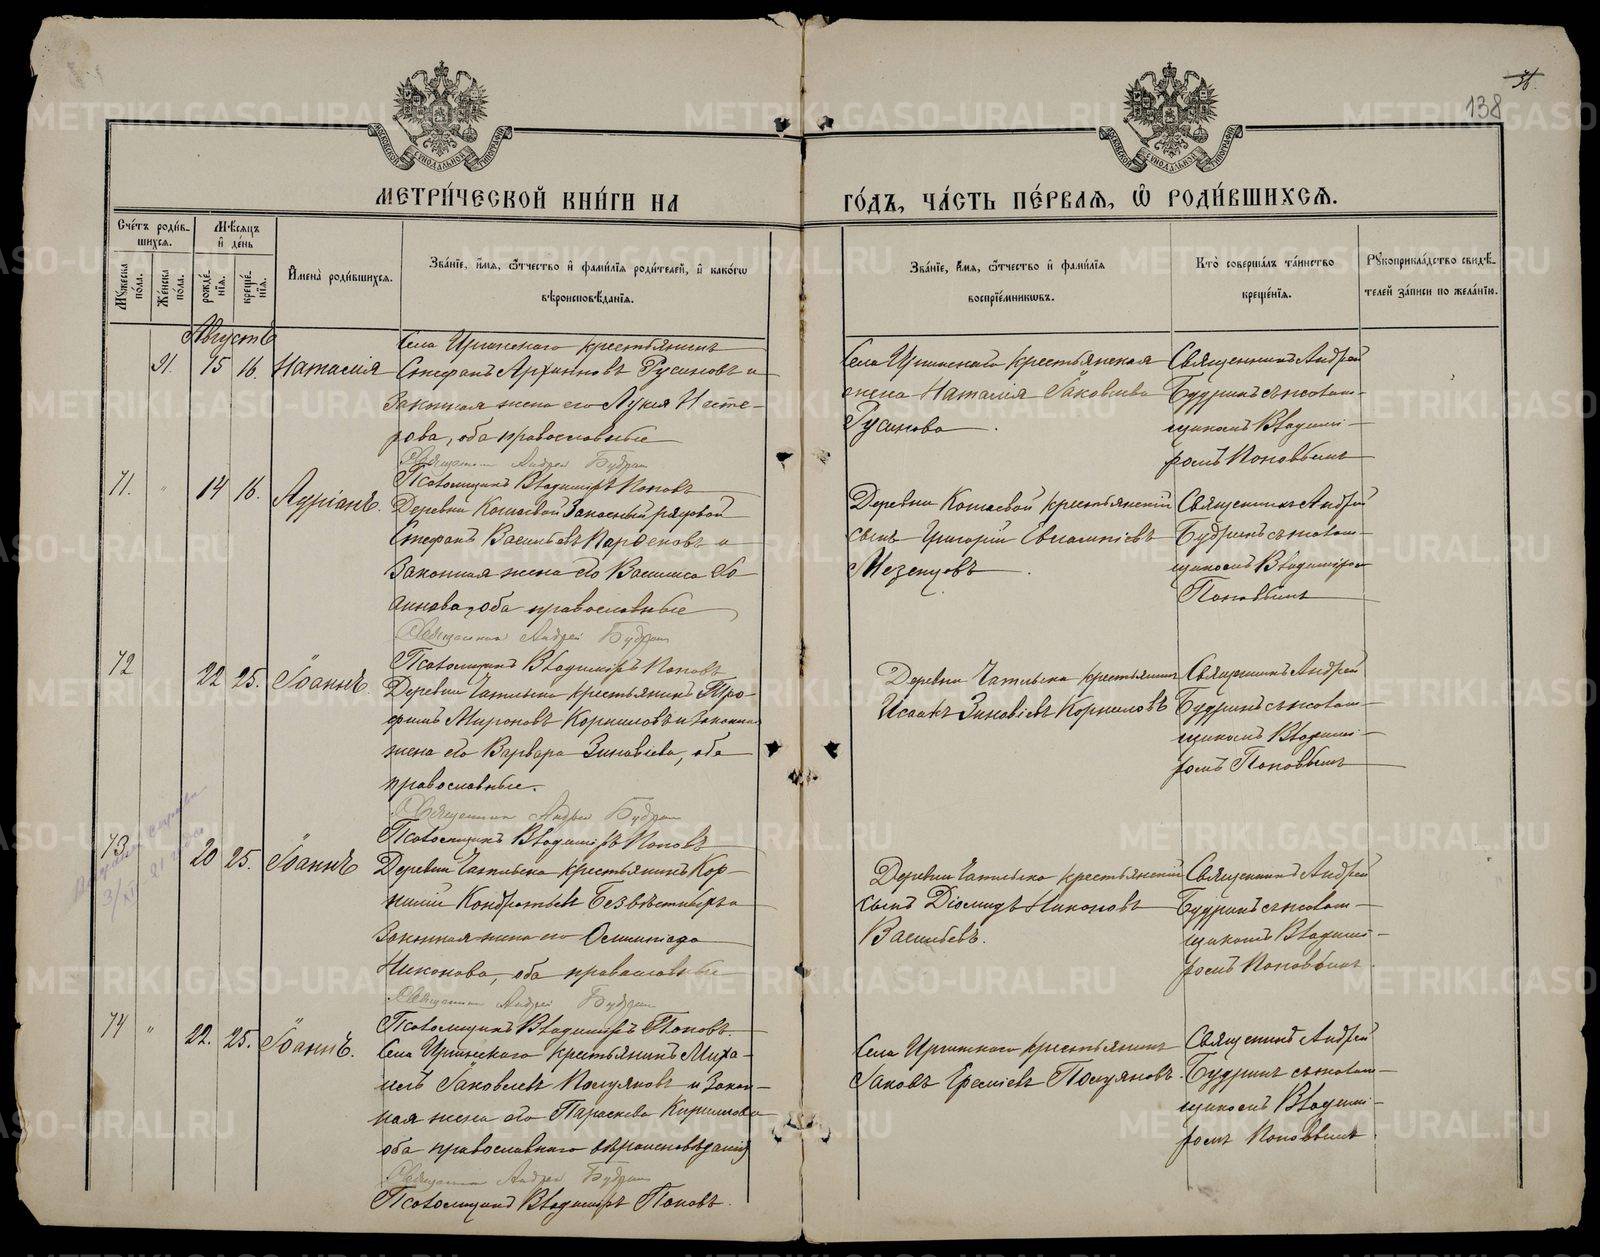 36.
138
МЕТРИ́ЧЕСКОЙ КНИ́ГИ НА
ГО́ДЪ, ЧА́СТЬ ПЕ́РВАЯ, Ѡ РОДИ́ВШИХСЯ.
Сче́тъ роди́в-
шихся.
Мѣ́сяцъ
и де́нь
Мꙋ́жеска по́ла.
Же́нска по́ла.
рожде́нія.
креще́нія.
Имена̀ роди́вшихся.
Зва́ніе, и́мя, ѻ́тчество и фами́лія роди́телей, и како́гѡ
вѣроисповѣ́данія.
Зва́ніе, и́мя, ѻ́тчество и фами́лія
воспріе́мникѡвъ.
Кто̀ соверша́лъ та́инство
креще́нія.
Рꙋкоприкла́дство свидѣ́-
телей за́писи по жела́нію.
Августъ
91. 15 16. Наталія
Села Иргинскаго крестьянинъ
Стефанъ Архиповъ Русиновъ и
Законная жена его Лукія Несте-
рова, оба православные
Священникъ Андрей Будринъ
Псаломщикъ Владиміръ Поповъ
Села Иргинскаго крестьянская
жена Наталія Іаковлева
Русинова.
Священникъ Андрей
Будринъ съ псалом-
щикомъ Владимі-
ромъ Поповымъ
71. " 14 16. Лурианъ.
Деревни Кошаевой Запасный рядовой
Стефанъ Васильевъ и
Законная жена его Василиса Іо-
аннова, оба православные
Священникъ Андрей Будринъ
Псаломщикъ Владиміръ Поповъ
Деревни Кошаевой крестьянскій
сынъ Григорій Евлампіевъ
Мезенцовъ.
Священникъ Андрей
Будринъ съ псалом-
щикомъ Владиміром
Поповымъ
72 22 25. Іоаннъ.
Деревни Чатлыка крестьянинъ Тро-
фимъ Мироновъ Корниловъ и Законная
жена его Варвара Зиновіева, оба
православные.
Священникъ Андрей Будринъ
Псаломщикъ Владиміръ Поповъ
Деревни Чатлыка крестьянинъ
Исаакъ Зиновіевъ Корниловъ
Священникъ Андрей
Будринъ съ псалом-
щикомъ Владимі-
ромъ Поповымъ
3/XII-21 года
73 20 25. Іоаннъ
Деревни Чатлыка крестьянинъ Кор-
нилій Кондратьевъ и
Законная жена его Олимпіада
Никонова, оба православные
Священникъ Андрей Будринъ
Псаломщикъ Владиміръ Поповъ.
Деревни Чатлыка крестьянскій
сынъ Діомидъ Никоновъ
Васильевъ.
Священникъ Андрей
Будринъ съ псалом-
щикомъ Владимі-
ромъ Поповымъ
74 " 22. 25. Іоаннъ.
Села Иргинскаго крестьянинъ Миха-
илъ Іаковлевъ Полуяновъ и Закон-
ная жена его Параскева Кириллова
оба православнаго вѣроисповѣданія
Священникъ Андрей Будринъ
Псаломщикъ Владиміръ Поповъ.
Села Иргинскаго крестьянинъ
Іаковъ Полуяновъ.
Священникъ Андрей
Будринъ съ псалом-
щикомъ Владимі-
ромъ Поповымъ.
METRIKI.GASO-URAL.RU